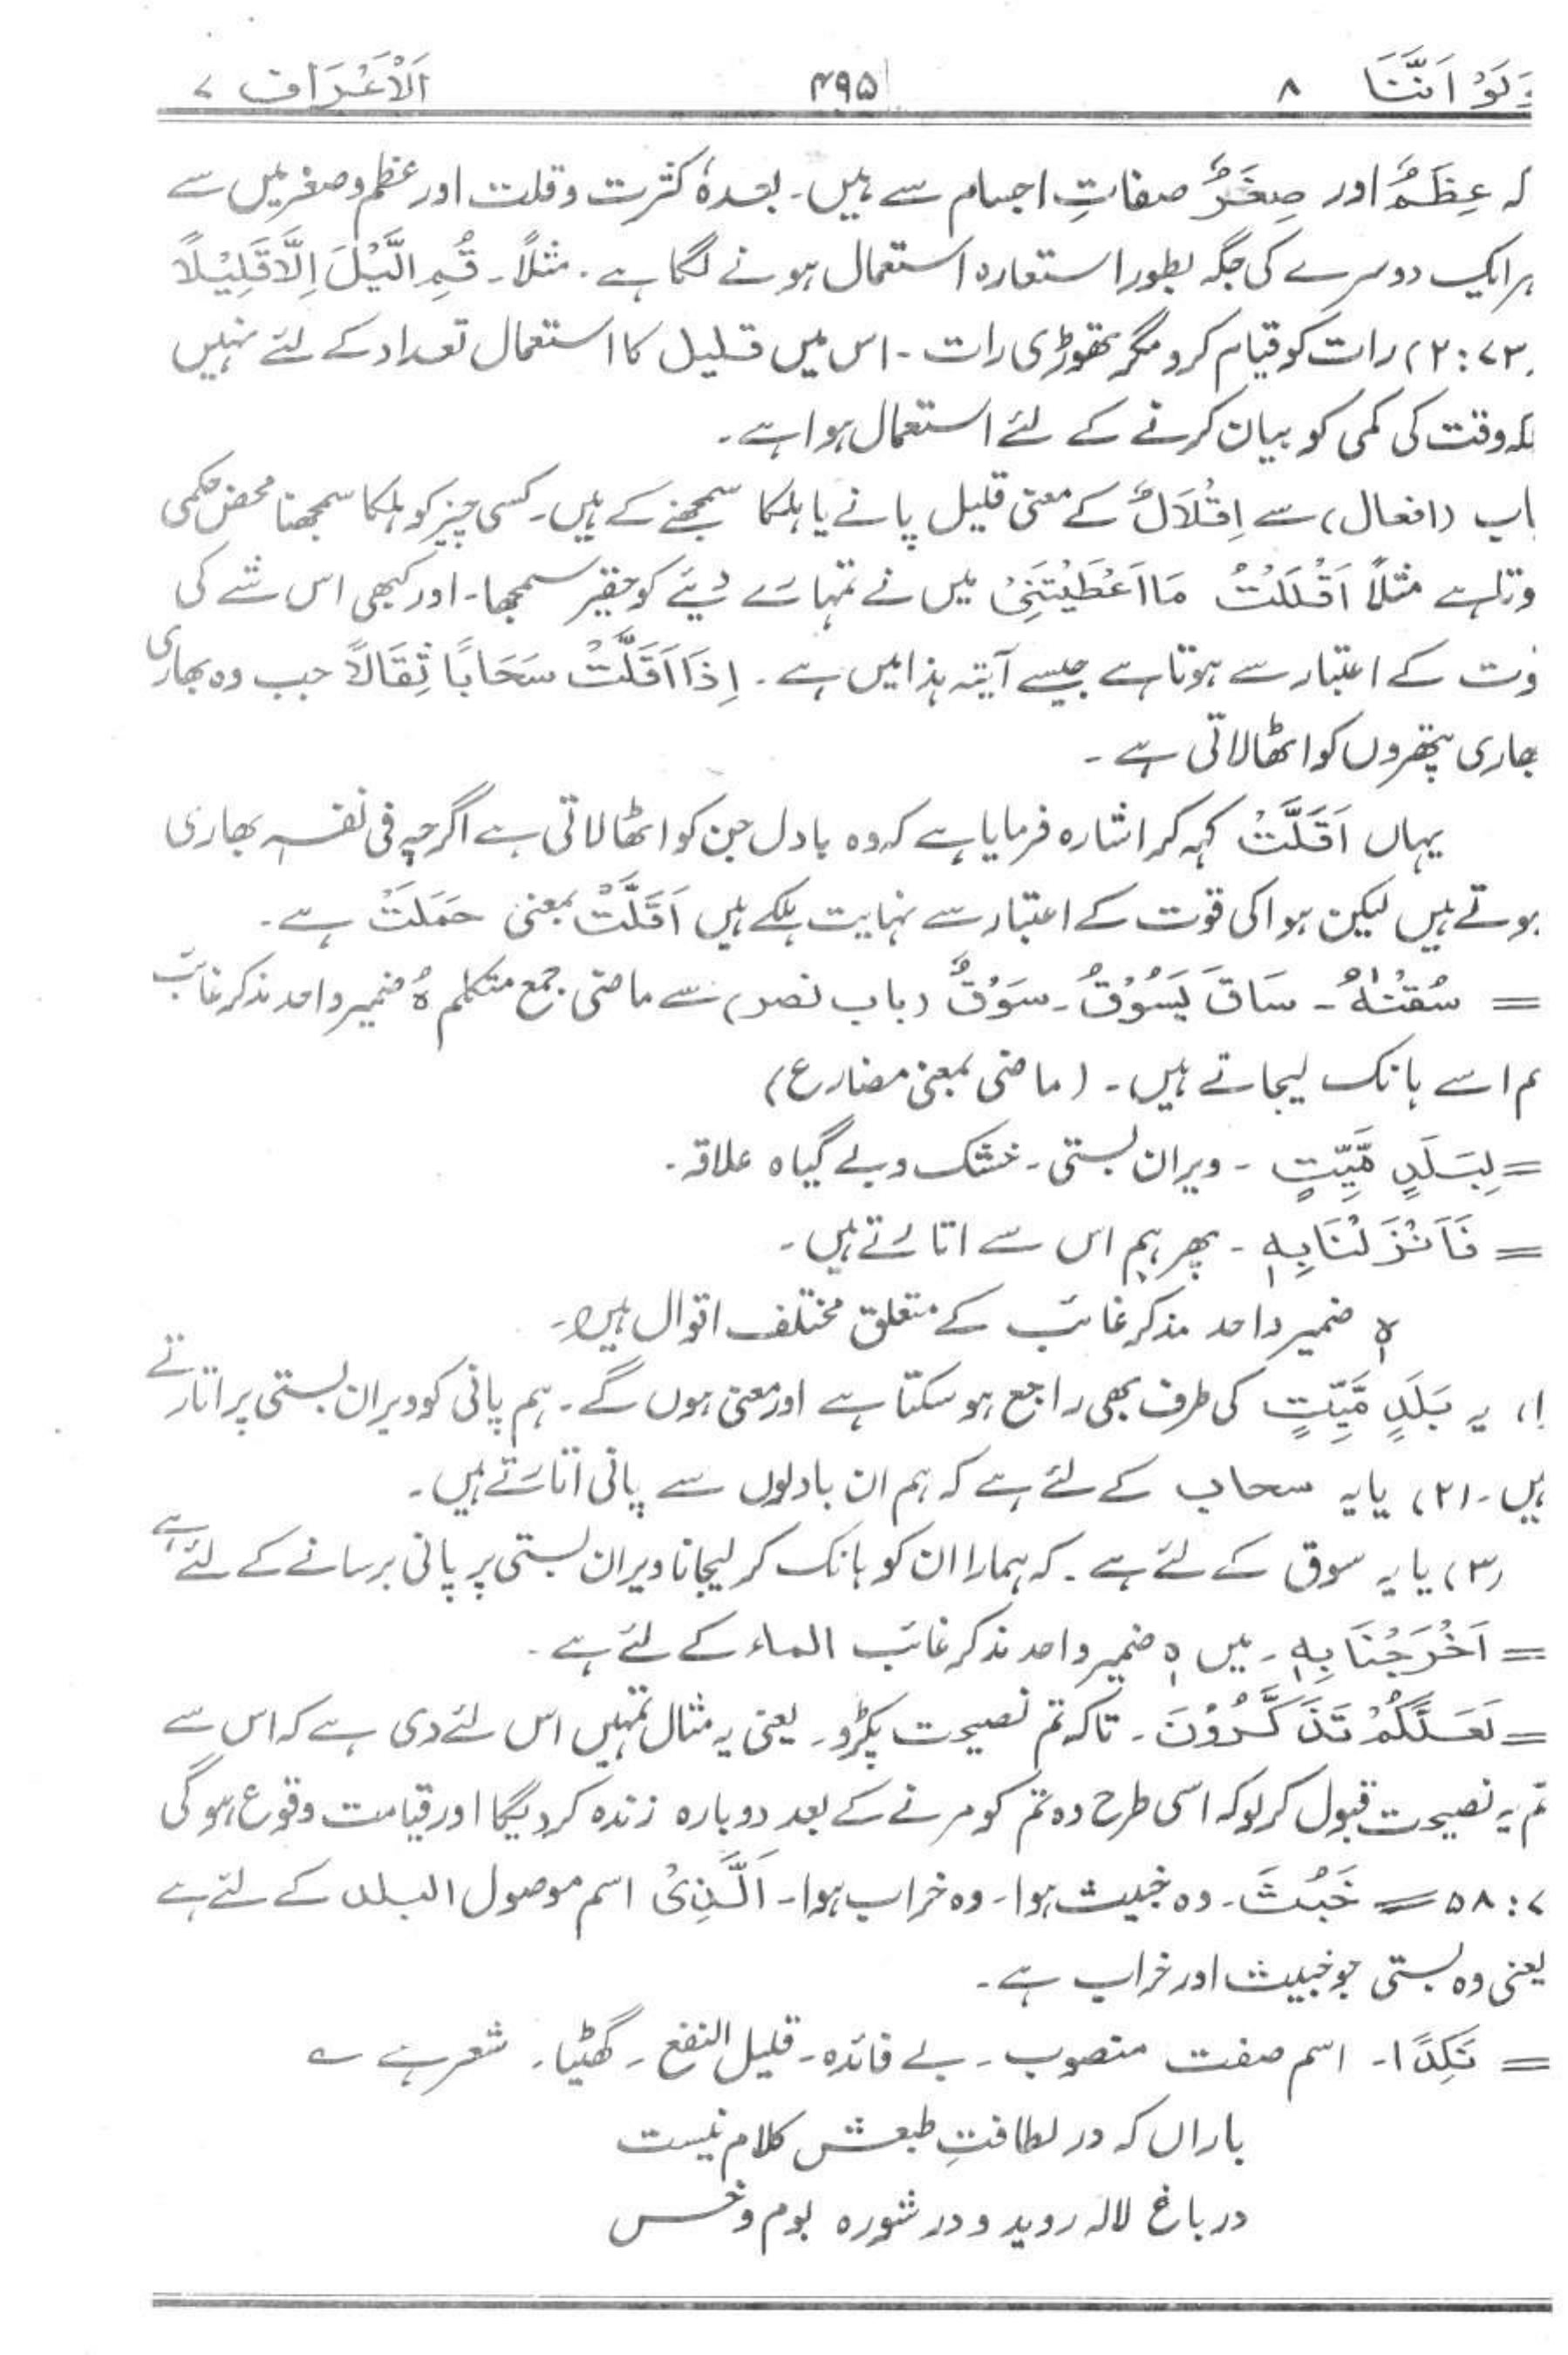 وَلَوْ اَنَّنَا ۸ ۴۹۵ اَلْاَعْرَاف ۷
کہ عِظَمٌ اور صِغَرٌ صفاتِ اجسام سے ہیں۔ بعدہٗ کثرت وقلت اور عظم وصغر میں سے
ہر ایک دوسرے کی جگہ بطور استعارہ استعمال ہونے لگا ہے۔ مثلاً۔ قُمِ الَّيْلَ اِلَّا قَلِيْلًا
(۷۳:۲) رات کو قیام کرو مگر تھوڑی رات۔ اس میں قلیل کا استعمال تعداد کے لئے نہیں
بلکہ وقت کی کمی کو بیان کرنے کے لئے استعمال ہوا ہے۔
باب (افعال) سے اِقْلَالٌ کے معنی قلیل پانے یا ہلکا سمجھنے کے ہیں۔ کسی چیز کو ہلکا سمجھنا محض حکمی
ہوتا ہے مثلاً اَقْلَلْتُ مَا اَعْطَيْتَنِیْ میں نے تمہارے دیئے کو حقیر سمجھا۔ اور کبھی اس شے کی
قوت کے اعتبار سے ہوتا ہے جیسے آیتہ ہذا میں ہے۔ اِذَا اَقَلَّتْ سَحَابًا ثِقَالًا جب وہ بھاری
بھاری پتھروں کو اٹھا لاتی ہے۔
یہاں اَقَلَّتْ کہہ کر اشارہ فرمایا ہے کہ وہ بادل جن کو اٹھا لاتی ہے اگرچہ فی نفسہٖ بھاری
ہوتے ہیں لیکن ہوا کی قوت کے اعتبار سے نہایت ہلکے ہیں اَقَلَّتْ بمعنی حَمَلَتْ ہے۔
= سُقْنٰہُ۔ سَاقَ یَسُوْقُ۔ سَوْقٌ (باب نصر) سے ماضی جمع متکلم ہُ ضمیر واحد مذکر غائب
ہم اسے ہانک لیجاتے ہیں۔ (ماضی بمعنی مضارع)
= لِبَلَدٍ مَّیِّتٍ۔ ویران بستی۔ خشک و بے گیاہ علاقہ۔
= فَاَنْزَلْنَا بِہٖ۔ پھر ہم اس سے اتارتے ہیں۔
ہٖ ضمیر واحد مذکر غائب کے متعلق مختلف اقوال ہیں۔
(۱) یہ بَلَدٍ مَّیِّتٍ کی طرف بھی راجع ہو سکتا ہے اور معنی ہوں گے۔ ہم پانی کو ویران بستی پر اتارتے
ہیں۔ (۲) یا یہ سحاب کے لئے ہے کہ ہم ان بادلوں سے پانی اتارتے ہیں۔
(۳) یا یہ سوق کے لئے ہے۔ کہ ہمارا ان کو ہانک کر لیجانا ویران بستی پر پانی برسانے کے لئے ہے
= اَخْرَجْنَا بِہٖ۔ میں ہٖ ضمیر واحد مذکر غائب الماء کے لئے ہے۔
= لَعَلَّکُمْ تَذَکَّرُوْنَ۔ تاکہ تم نصیحت پکڑو۔ یعنی یہ مثال تمہیں اس لئے دی ہے کہ اس سے
تم یہ نصیحت قبول کر لو کہ اسی طرح وہ تم کو مرنے کے بعد دوبارہ زندہ کر دیگا اور قیامت وقوع ہوگی
۷:۵۸ = خَبُثَ۔ وہ خبیث ہوا۔ وہ خراب ہوا۔ اَلَّذِیْ اسم موصول البلد کے لئے ہے
یعنی وہ بستی جو خبیث اور خراب ہے۔
= نَکِدًا۔ اسم صفت منصوب۔ بے فائدہ۔ قلیل النفع۔ گھٹیا۔ شعر ہے ؎
باراں کہ در لطافتِ طبعش کلام نیست
در باغ لالہ روید و در شورہ بوم و خس